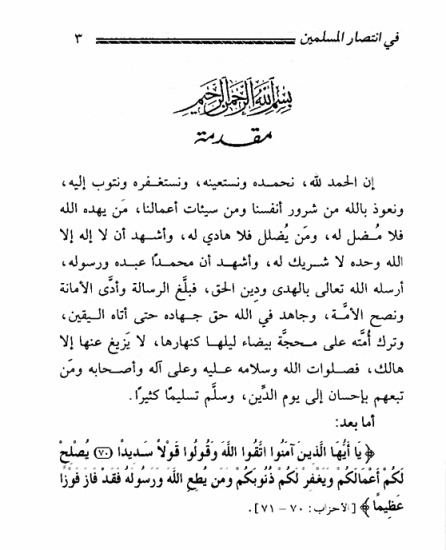 في انتصار المسلمين ٣
بسم الله الرحمن الرحيم
مقدمة
إن الحمد لله، نحمده ونستعينه، ونستغفره ونتوب إليه،
ونعوذ بالله من شرور أنفسنا ومن سيئات أعمالنا، مَن يهده الله
فلا مُضل له، ومَن يُضلل فلا هادي له، وأشهد أن لا إله إلا
الله وحده لا شريك له، وأشهد أن محمدًا عبده ورسوله،
أرسله الله تعالى بالهدى ودِين الحق، فبلَّغ الرسالة وأدَّى الأمانة
ونصح الأمَّة، وجاهد في الله حق جهاده حتى أتاه اليقين،
وترك أُمَّته على محجَّة بيضاء ليلها كنهارها، لا يَزيغ عنها إلا
هالك، فصلوات الله وسلامه عليه وعلى آله وأصحابه ومَن
تبعهم بإحسان إلى يوم الدِّين، وسلَّم تسليمًا كثيرًا.
أما بعد:
﴿ يَا أَيُّهَا الَّذِينَ آمَنُوا اتَّقُوا اللَّهَ وَقُولُوا قَوْلاً سَدِيدًا (٧٠) يُصْلِحْ
لَكُمْ أَعْمَالَكُمْ وَيَغْفِرْ لَكُمْ ذُنُوبَكُمْ وَمَن يُطِعِ اللَّهَ وَرَسُولَهُ فَقَدْ فَازَ فَوْزًا
عَظِيمًا ﴾ [الأحزاب: ٧٠ – ٧١].